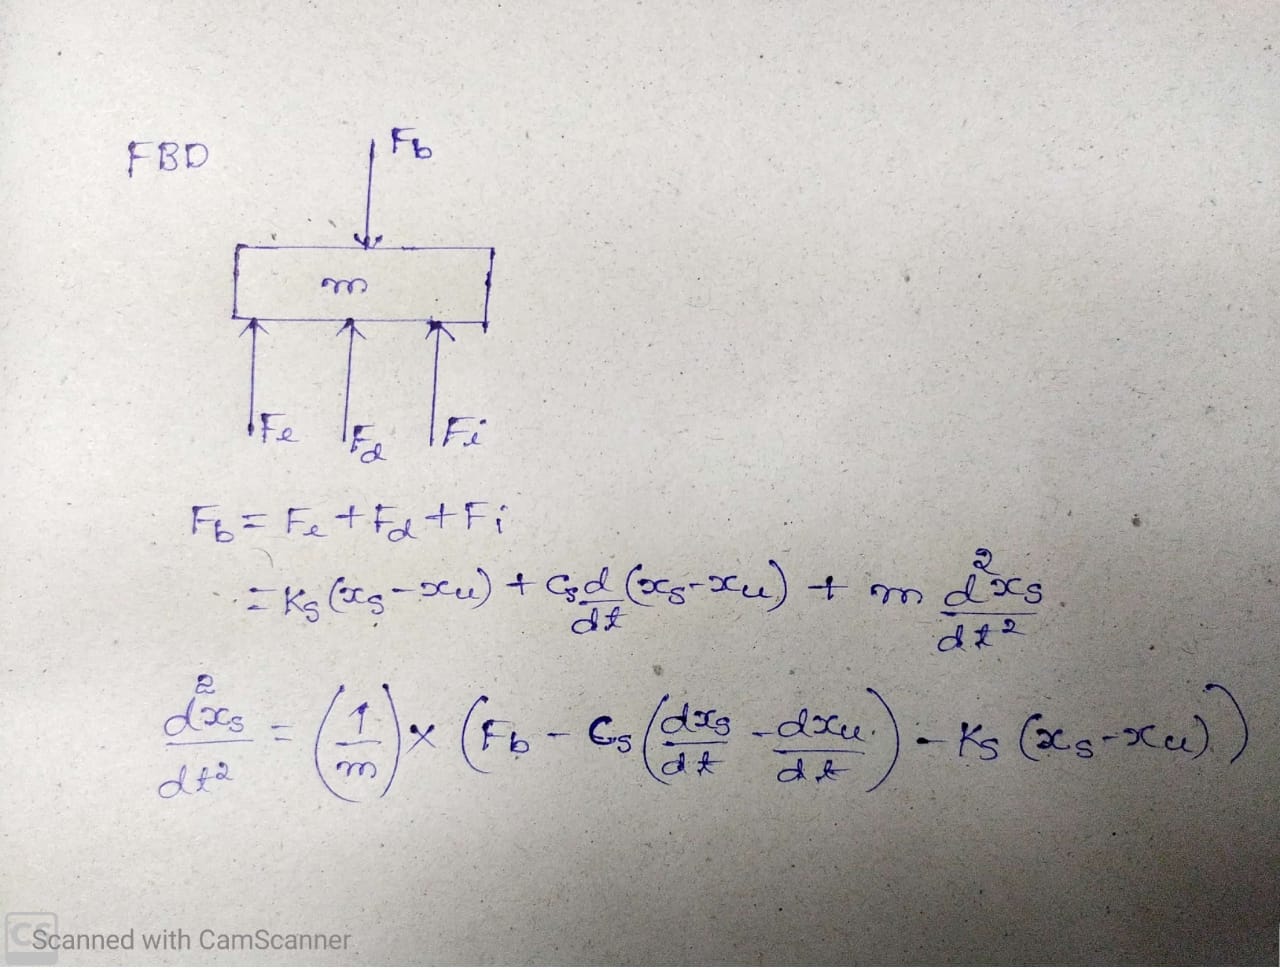 FBD
Fb
m
Fe Fd Fi
Fb = Fe + Fd + Fi
= Ks (xs - xu) + Cs d/dt (xs - xu) + m d²xs/dt²
d²xs/dt² = (1/m) × (Fb - Cs (dxs/dt - dxu/dt) - Ks (xs - xu))
CS Scanned with CamScanner